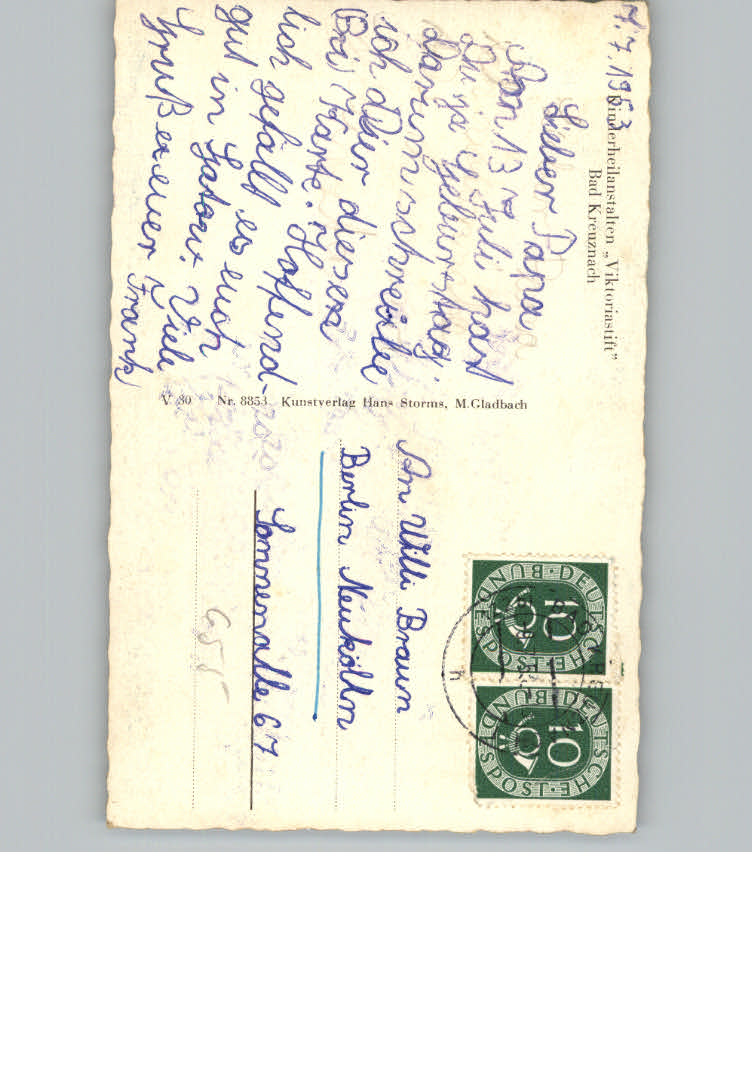 7.7.1953
Kinderheilanstalten „Viktoriastift"
Bad Kreuznach
Lieber Papa
Am 13 Juli hast
Du ja Geburtstag.
Darum schreibe
ich dir diese
Karte. Hoffend-
lich gefällt es euch
gut in Gatow. Viele
Grüße euer Frank
V 30 Nr. 8853 Kunstverlag Hans Storms, M.Gladbach
An Willi Braun
Berlin Neukölln
Sonnenalle 67
DEUTSCHE BUNDESPOST
10
DEUTSCHE BUNDESPOST
10